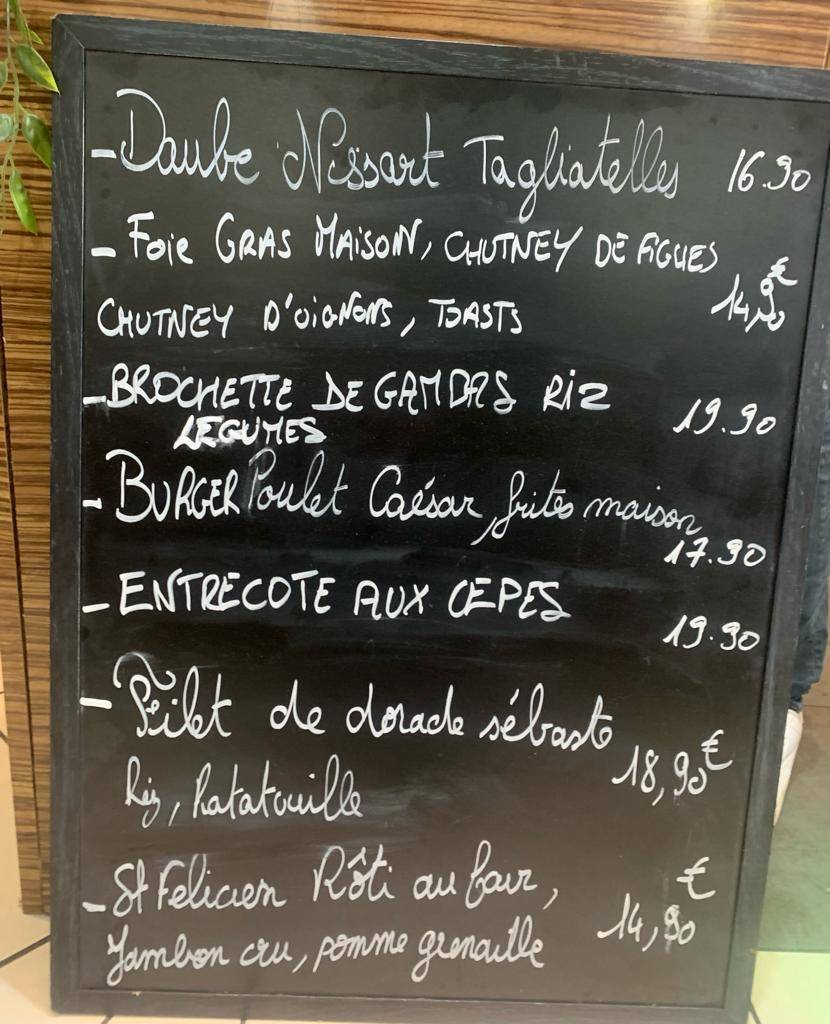 - Daube Nissart Tagliatelles 16.90
- Foie GRAS MAISON, CHUTNEY DE FIGUES
CHUTNEY D'OiGNONS, TOASTS 14,90 €
- BROCHETTE DE GAMBAS RiZ
LEGUMES 19.90
- BURGER Poulet Caésar, frites maison
17.90
- ENTRECOTE AUX CEPES
19.90
- Filet de dorade sébaste
Riz, Ratatouille 18,90€
- St Felicien Rôti au four,
Jambon cru, pomme grenaille 14,90 €